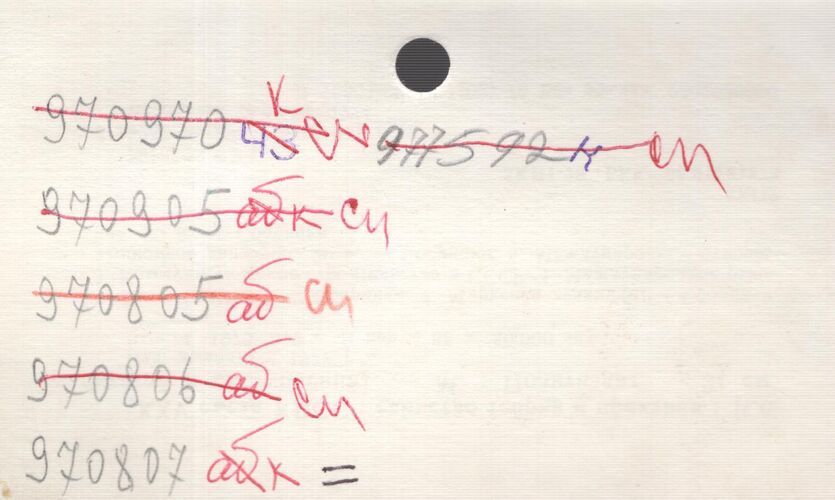 970970 43 к сп 977592 к сп
970905 аб к сп
970805 аб сп
970806 аб сп
970807 аб к =